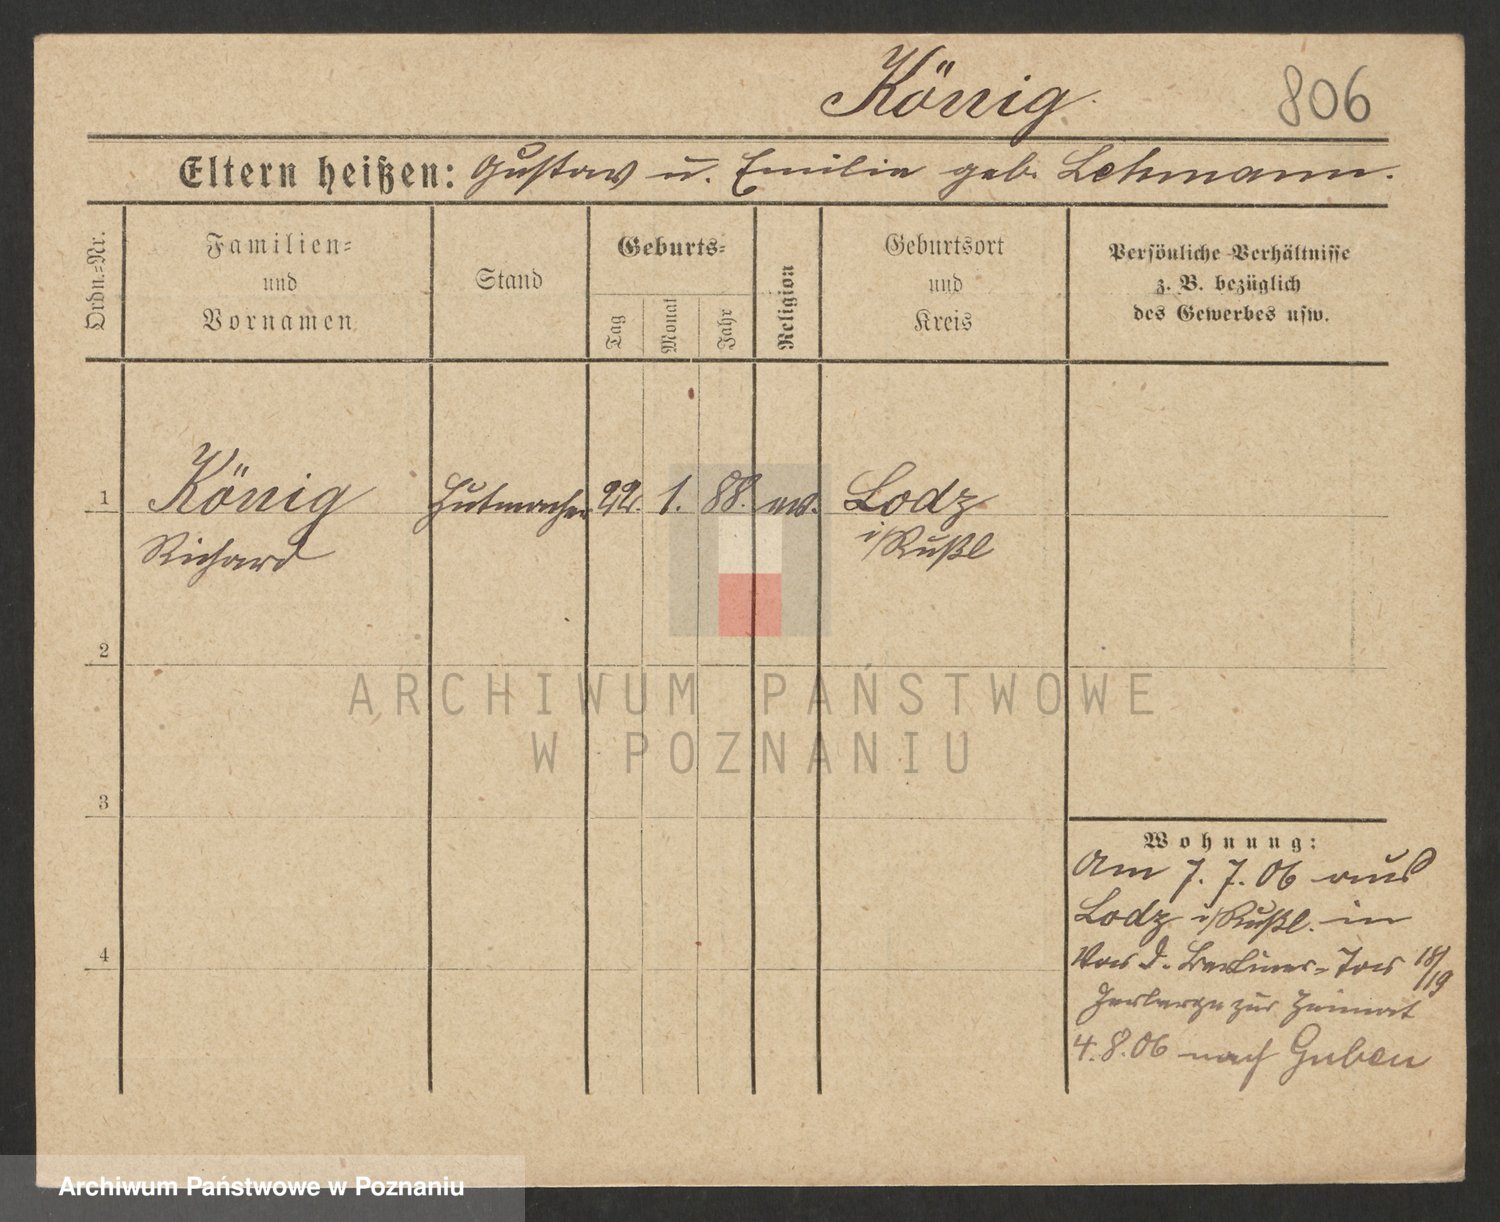 König.
806
Eltern heißen: Gustav u. Emilie geb. Lehmann.
Ordn.=Nr.
Familien=
und
Vornamen
Stand
Geburts=
Tag
Monat
Jahr
Religion
Geburtsort
und
Kreis
Persönliche Verhältnisse
z. B. bezüglich
des Gewerbes usw.
1
König
Hutmacher
22.
1.
88.
ev.
Lodz
i/Rußl
Richard
2
ARCHIWUM PAŃSTWOWE
W POZNANIU
3
Wohnung:
Am 7. 7. 06 aus
Lodz i/Rußl. in
Vor d. Berliner-Tor 18/19
Herberge zur Heimat
4
4. 8. 06 nach Guben
Archiwum Państwowe w Poznaniu